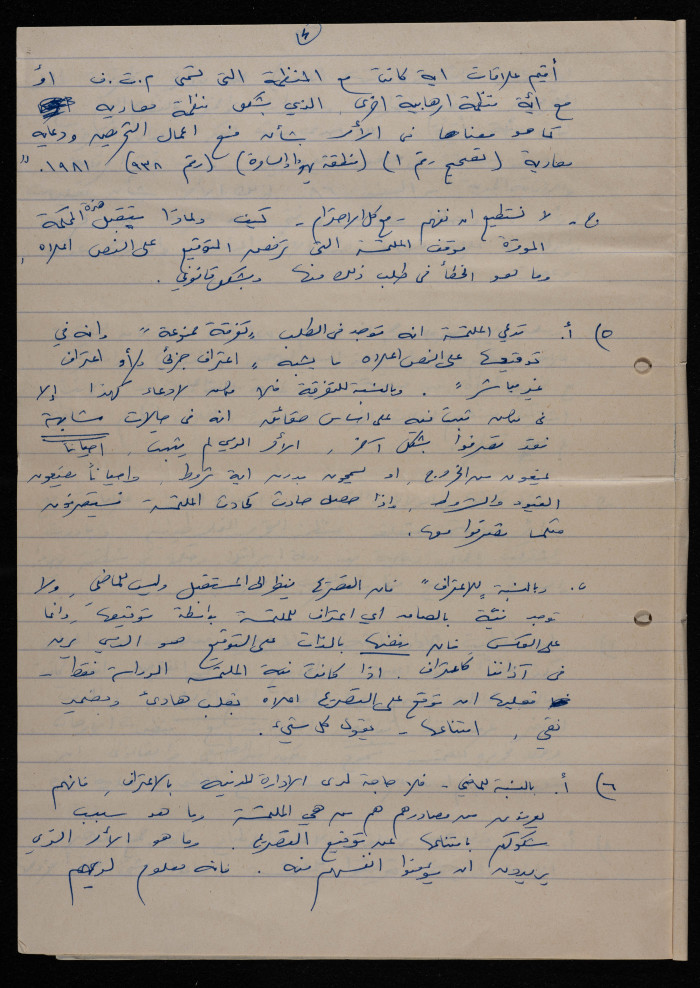 ٤
أقيم علاقات اية كانت مع المنظمة التي تسمى م.ت.ف او
مع أية منظمة ارهابية اخرى، الذي يشكل منظمة معادية
كما هو معناها في الأمر بشأن منع اعمال التحريض ودعاية
معادية (تصحيح رقم ١) (منطقة يهودا والسامرة) (رقم ٩٣٨) ١٩٨١."
ج- لا نستطيع ان نفهم - مع كل الاحترام - كيف ولماذا ستقبل هذه المحكمة
الموقرة موقف الملتمسة التي ترفض التوقيع على النص اعلاه،
وما هو الخطأ في طلب ذلك منها وبشكل قانوني.
٥) أ. تدعي الملتمسة انه توجد في الطلب "تفرقة ممنوعة" وانه في
توقيعها على النص اعلاه ما يشبه "اعتراف جزئي و/أو اعتراف
غير مباشر". وبالنسبة للتفرقة فلا مكان لادعاء كهذا إلا
في مكان تثبت فيه على اساس حقائق انه في حالات مشابهة
فقد تصرفوا بشكل آخر، الأمر الذي لم يثبت، احيانا
يمنعون من الخروج، او يسمحون بدون اية شروط، واحياناً يضعون
القيود والشروط، واذا حصل حادث كحادث الملتمسة فسيتصرفون
مثلما تصرفوا معها.
ب. وبالنسبة "للاعتراف" فان التصريح ينظر الى المستقبل وليس للماضي، ولا
توجد نية بالصاق اي اعتراف للملتمسة بواسطة توقيعها، وانما
على العكس، فان رفضها بالذات على التوقيع هو الذي يرن
في آذاننا كاعتراف. اذا كانت نية الملتمسة الدراسة فقط -
فعليها ان توقع على التصريح اعلاه بقلب هادئ وضمير
نقي، امتناعها - يقول كل شيء.
٦) أ. بالنسبة للماضي - فلا حاجة لدى الادارة المدنية بالاعتراف، فانهم
يعرفون من مصادرهم هم من هي الملتمسة وما هو سبب
شكوكهم بامتناعها عن توقيع التصريح. وما هو الأمر الذي
يريدون ان يؤمنوا انفسهم منه. فانه معلوم لديهم